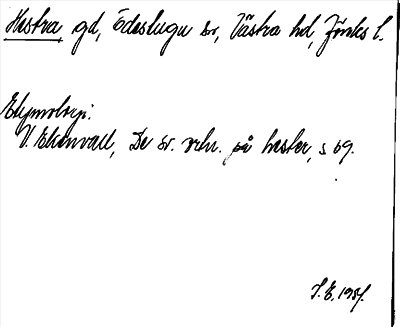 Hestra gd, Ödeshugu sn, Västra hd, Jönks l.
Etymologi:
V. Ekenvall, De sv. ortn. på hester, s 69.
S.E. 1954.